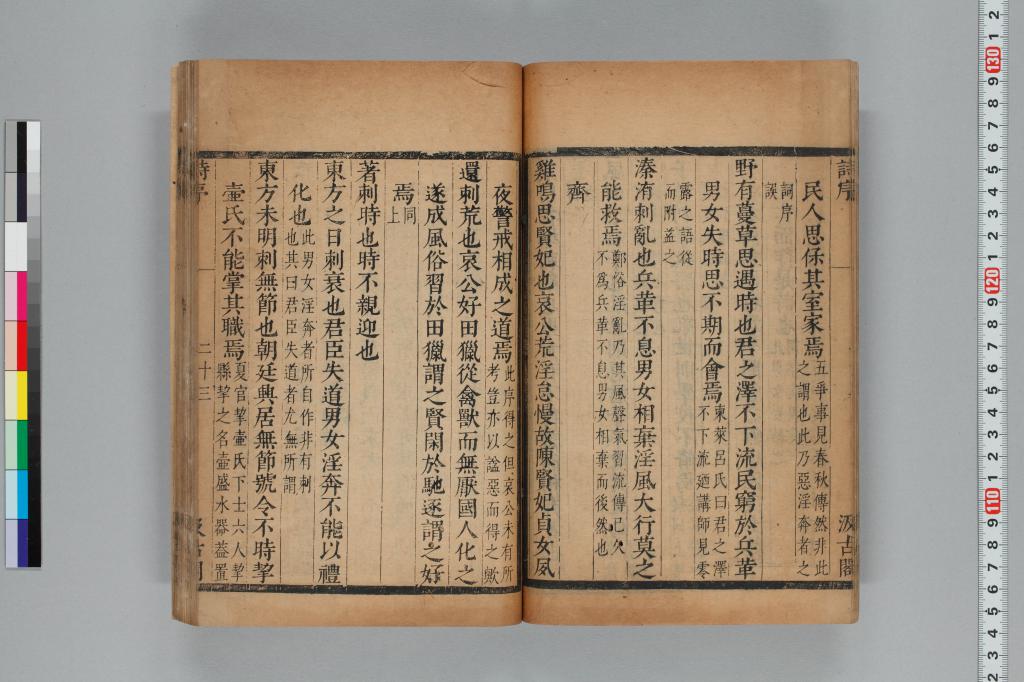 詩序
汲古閣
民人思保其室家焉五爭事見春秋傳然非此之謂也此乃惡淫奔者之
詞序誤
野有蔓草思遇時也君之澤不下流民窮於兵革
男女失時思不期而會焉東萊呂氏曰君之澤不下流廼講師見零
露之語從而附益之
溱洧刺亂也兵革不息男女相棄淫風大行莫之
能救焉鄭俗淫亂乃其風聲氣習流傳已久不爲兵革不息男女相棄而後然也
齊
雞鳴思賢妃也哀公荒淫怠慢故陳賢妃貞女夙
夜警戒相成之道焉此序得之但哀公未有所考豈亦以諡惡而得之歟
還刺荒也哀公好田獵從禽獸而無厭國人化之
遂成風俗習於田獵謂之賢閑於馳逐謂之好
焉同上
著刺時也時不親迎也
東方之日刺衰也君臣失道男女淫奔不能以禮
化也此男女淫奔者所自作非有刺也其曰君臣失道者尤無所謂
東方未明刺無節也朝廷興居無節號令不時挈
壷氏不能掌其職焉夏官挈壷氏下士六人挈縣挈之名壷盛水器蓋置
詩序
二十三
汲古閣
10
11
12
130
120
110